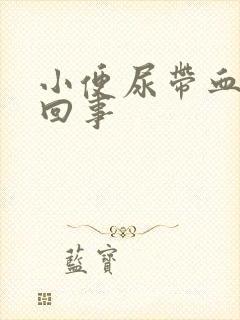 小便尿帶血
回事
藍寶